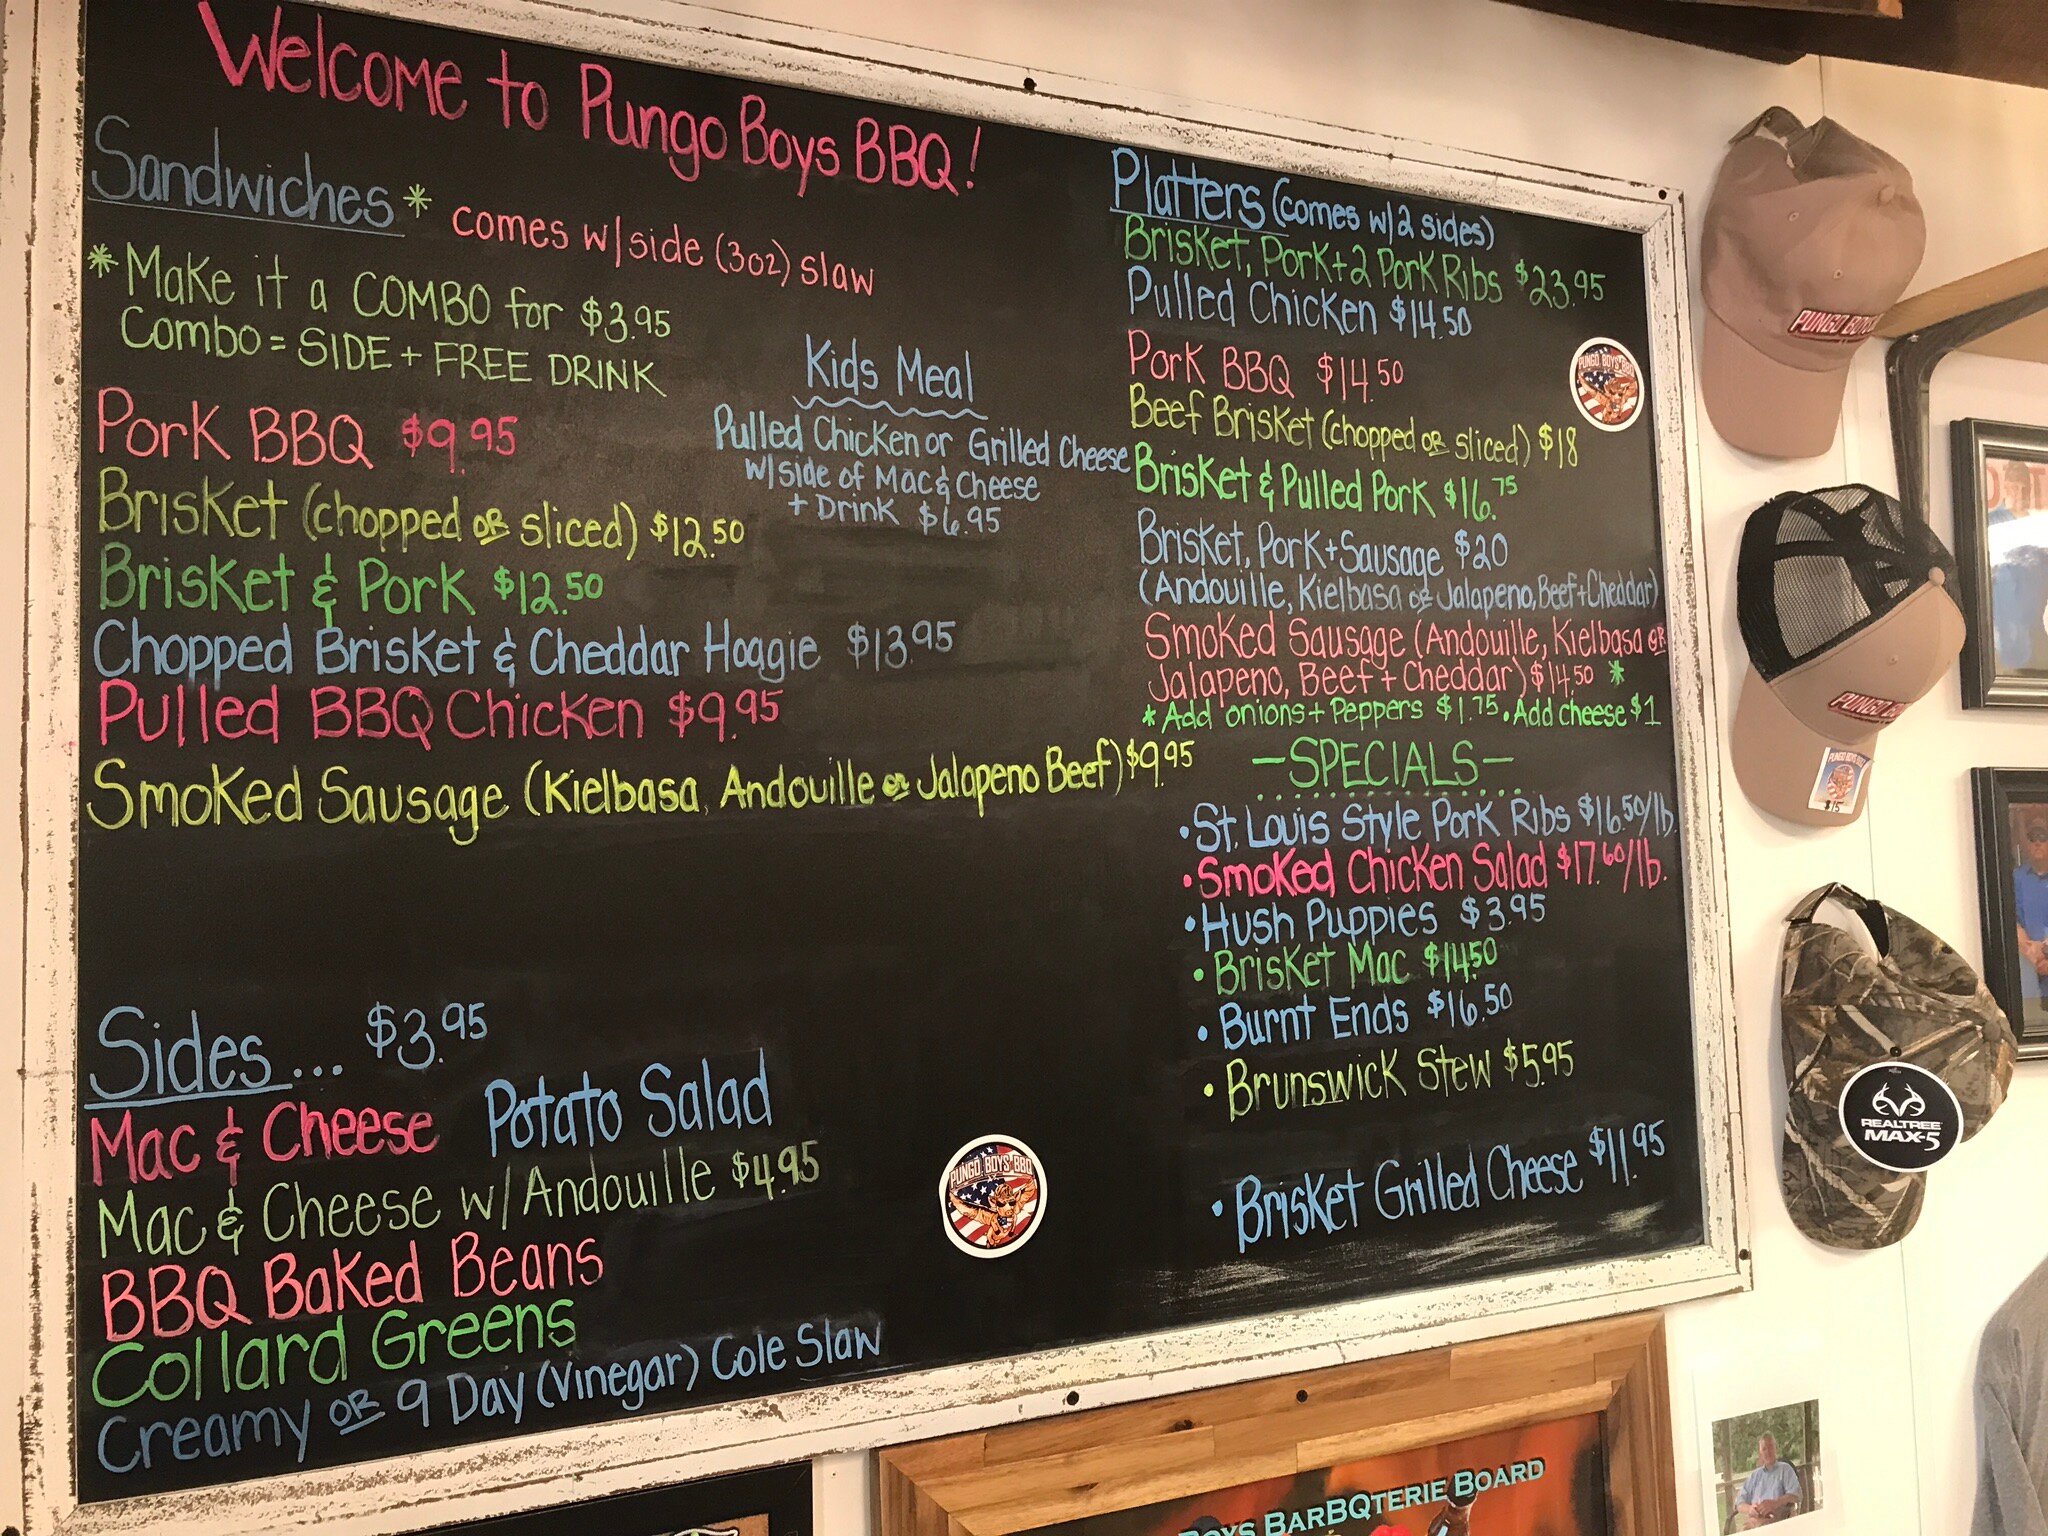 Welcome to Pungo Boys BBQ!
Sandwiches * comes w/side (3oz) slaw
*Make it a COMBO for $3.95
Combo = SIDE + FREE DRINK
Pork BBQ $9.95
Brisket (chopped or sliced) $12.50
Brisket & Pork $12.50
Chopped Brisket & Cheddar Hoagie $13.95
Pulled BBQ Chicken $9.95
Smoked Sausage (Kielbasa, Andouille or Jalapeno Beef) $9.95
Kids Meal
Pulled Chicken or Grilled Cheese
w/side of Mac & Cheese
+ Drink $6.95
Sides... $3.95
Mac & Cheese Potato Salad
Mac & Cheese w/Andouille $4.95
BBQ Baked Beans
Collard Greens
Creamy or 9 Day (Vinegar) Cole Slaw
PUNGO BOYS BBQ
Platters (comes w/2 sides)
Brisket, Pork + 2 Pork Ribs $23.95
Pulled Chicken $14.50
Pork BBQ $14.50
Beef Brisket (chopped or sliced) $18
Brisket & Pulled Pork $16.75
Brisket, Pork + Sausage $20
(Andouille, Kielbasa or Jalapeno, Beef + Cheddar)
Smoked Sausage (Andouille, Kielbasa or
Jalapeno, Beef + Cheddar) $14.50 *
* Add onions + Peppers $1.75. Add cheese $1
PUNGO BOYS BBQ
- SPECIALS -
• St. Louis Style Pork Ribs $16.50/lb.
• Smoked Chicken Salad $17.60/lb.
• Hush Puppies $3.95
• Brisket Mac $14.50
• Burnt Ends $16.50
• Brunswick Stew $5.95
• Brisket Grilled Cheese $11.95
PUNGO BOYS
PUNGO BOYS
$15
REALTREE
MAX-5
BOYS BARBQTERIE BOARD